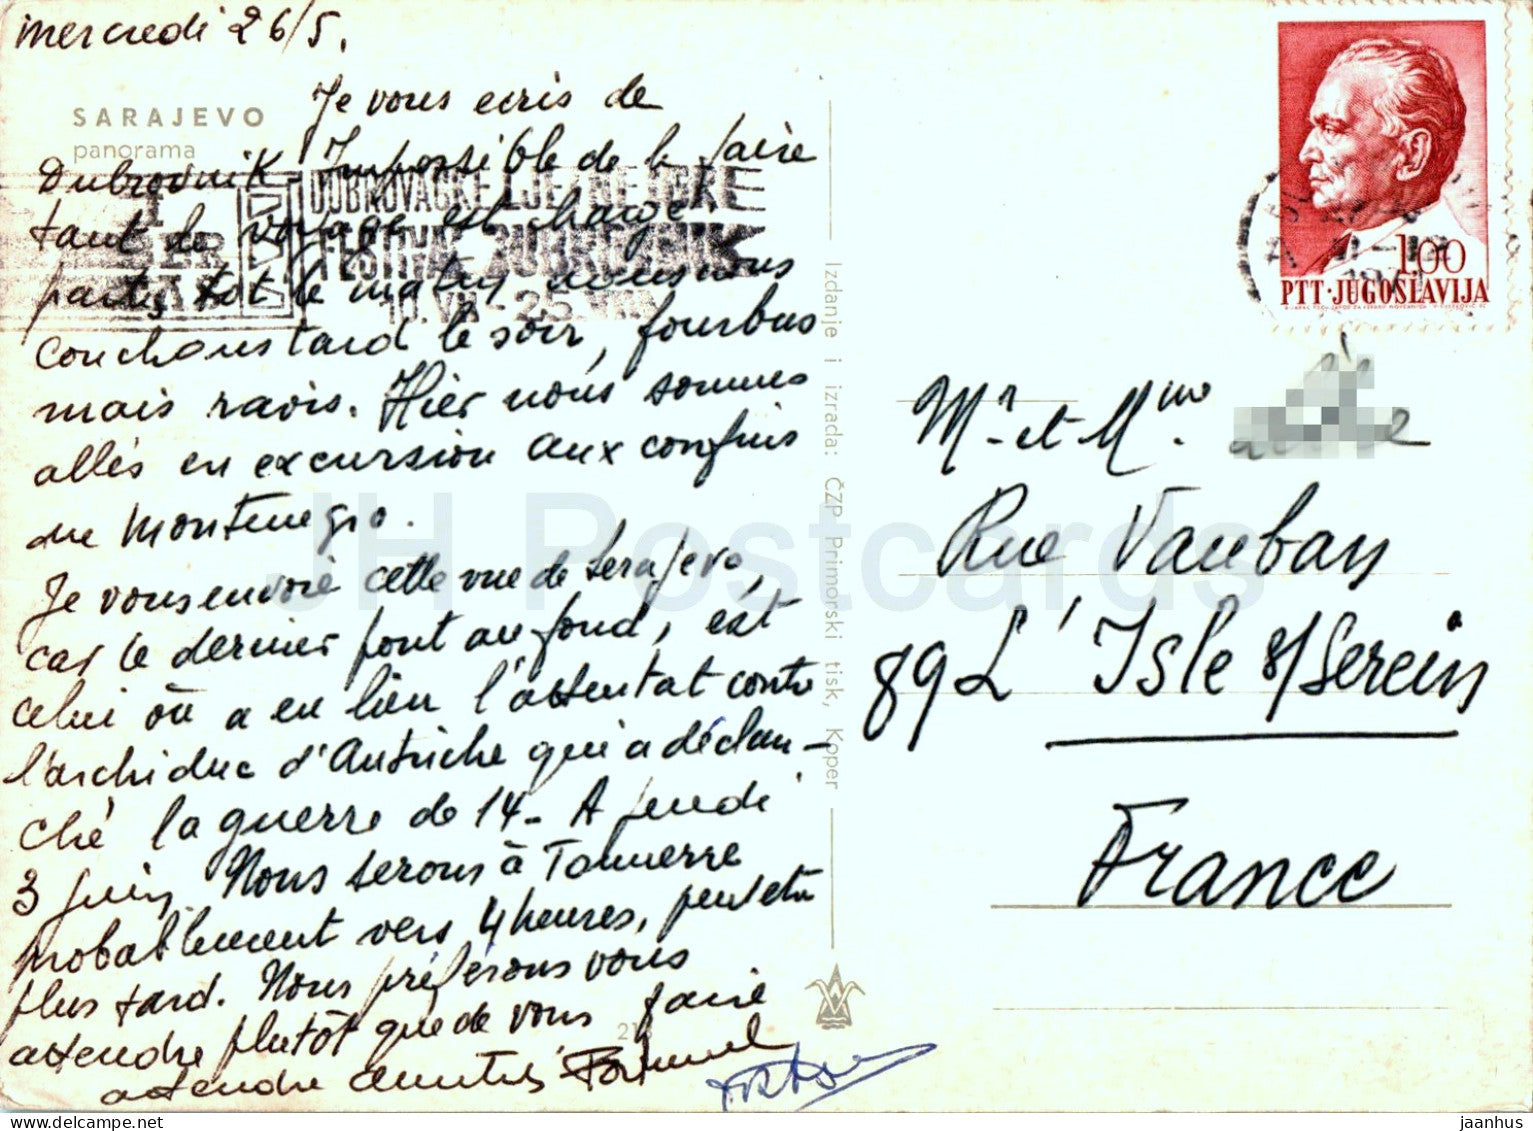 mercredi 26/5.
SARAJEVO
panorama
Je vous ecris de
Dubrovnik. Impossible de le faire
tant le voyage est chargé.
partis tôt le matin nous nous
couchons tard le soir, fourbus
mais ravis. Hier nous sommes
allés en excursion aux confins
du Montenegro.
Je vous envoie cette vue de Serajevo,
car le dernier pont au fond, est
celui où a eu lieu l'attentat contre
l'archiduc d'Autriche qui a déclan-
ché la guerre de 14 - A jeudi
3 juin. Nous serons à Tonnerre
probablement vers 4 heures, peut être
plus tard. Nous préférons vous
attendre plutôt que de vous faire
attendre amitiés
DUBROVAČKE LJETNE IGRE
FESTIVAL DUBROVNIK
10.VII - 25.VIII
Izdanje i izrada: ČZP Primorski tisk, Koper
1.00
PTT · JUGOSLAVIJA
Mr et Mme
Rue Vauban
89 L'Isle s/Serein
France
JH Postcards
www.hippostcard.com
jaanhus